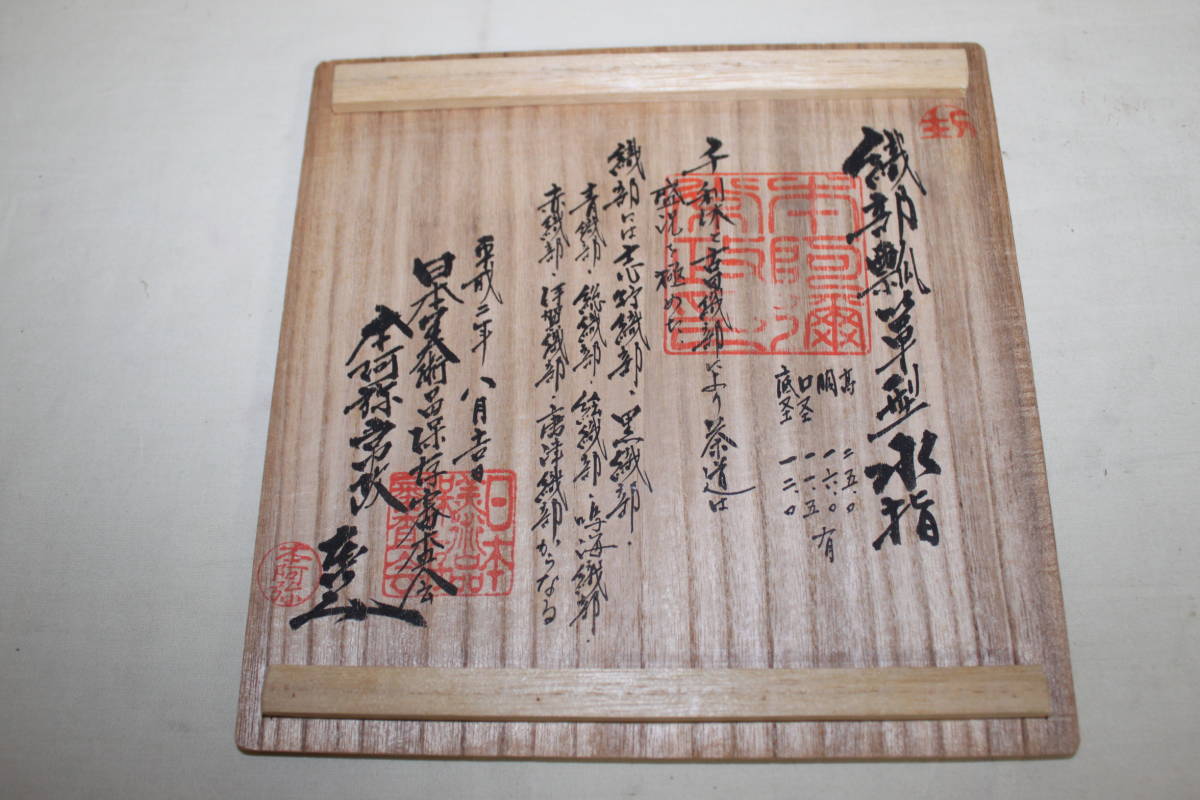 織部瓢箪型水指
高 二五.〇
胴 一六.〇 有
口径 一一.五
底径 一二.〇
千利休と古田織部により茶道は
盛況を極めた
織部には志野織部、黒織部、
青織部、総織部、絵織部、鳴海織部、
赤織部、伊賀織部、唐津織部からなる
平成二年 八月吉日
日本美術品保存審査会
本阿弥
本阿彌
日本美術品
本阿弥